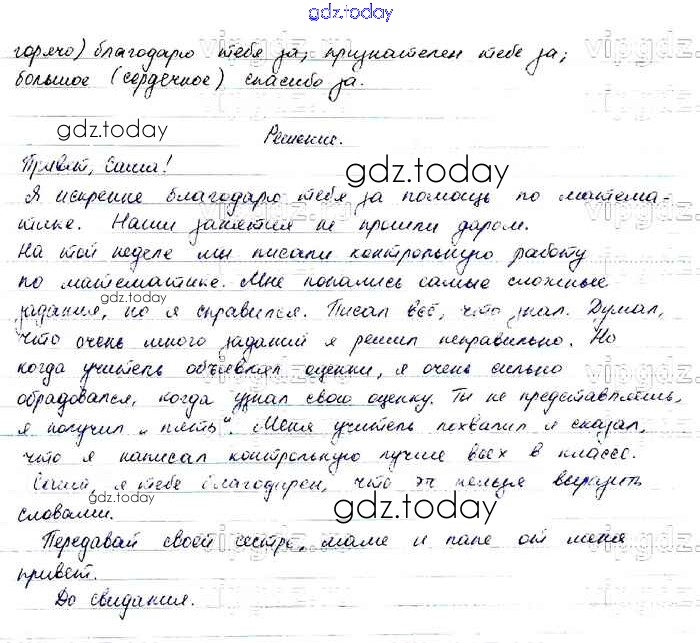 gdz.today
горячо) благодарю тебя за; признателен тебе за;
большое (сердечное) спасибо за.
gdz.today
Решение.
Привет, Саша!
gdz.today
Я искренне благодарю тебя за помощь по матема-
тике. Наши занятия не прошли даром.
На той неделе мы писали контрольную работу
по математике. Мне попались самые сложные
gdz.today
задания, но я справился. Писал всё, что знал. Думал,
что очень много заданий я решил неправильно. Но
когда учитель объявлял оценки, я очень сильно
обрадовался, когда узнал свою оценку. Ты не представляешь,
я получил "пять". Меня учитель похвалил и сказал,
что я написал контрольную лучше всех в классе.
Саша, я тебе благодарен, что нельзя выразить
gdz.today
словами.
gdz.today
Передавай своей сестре, маме и папе от меня
привет.
До свидания.
gdz.today